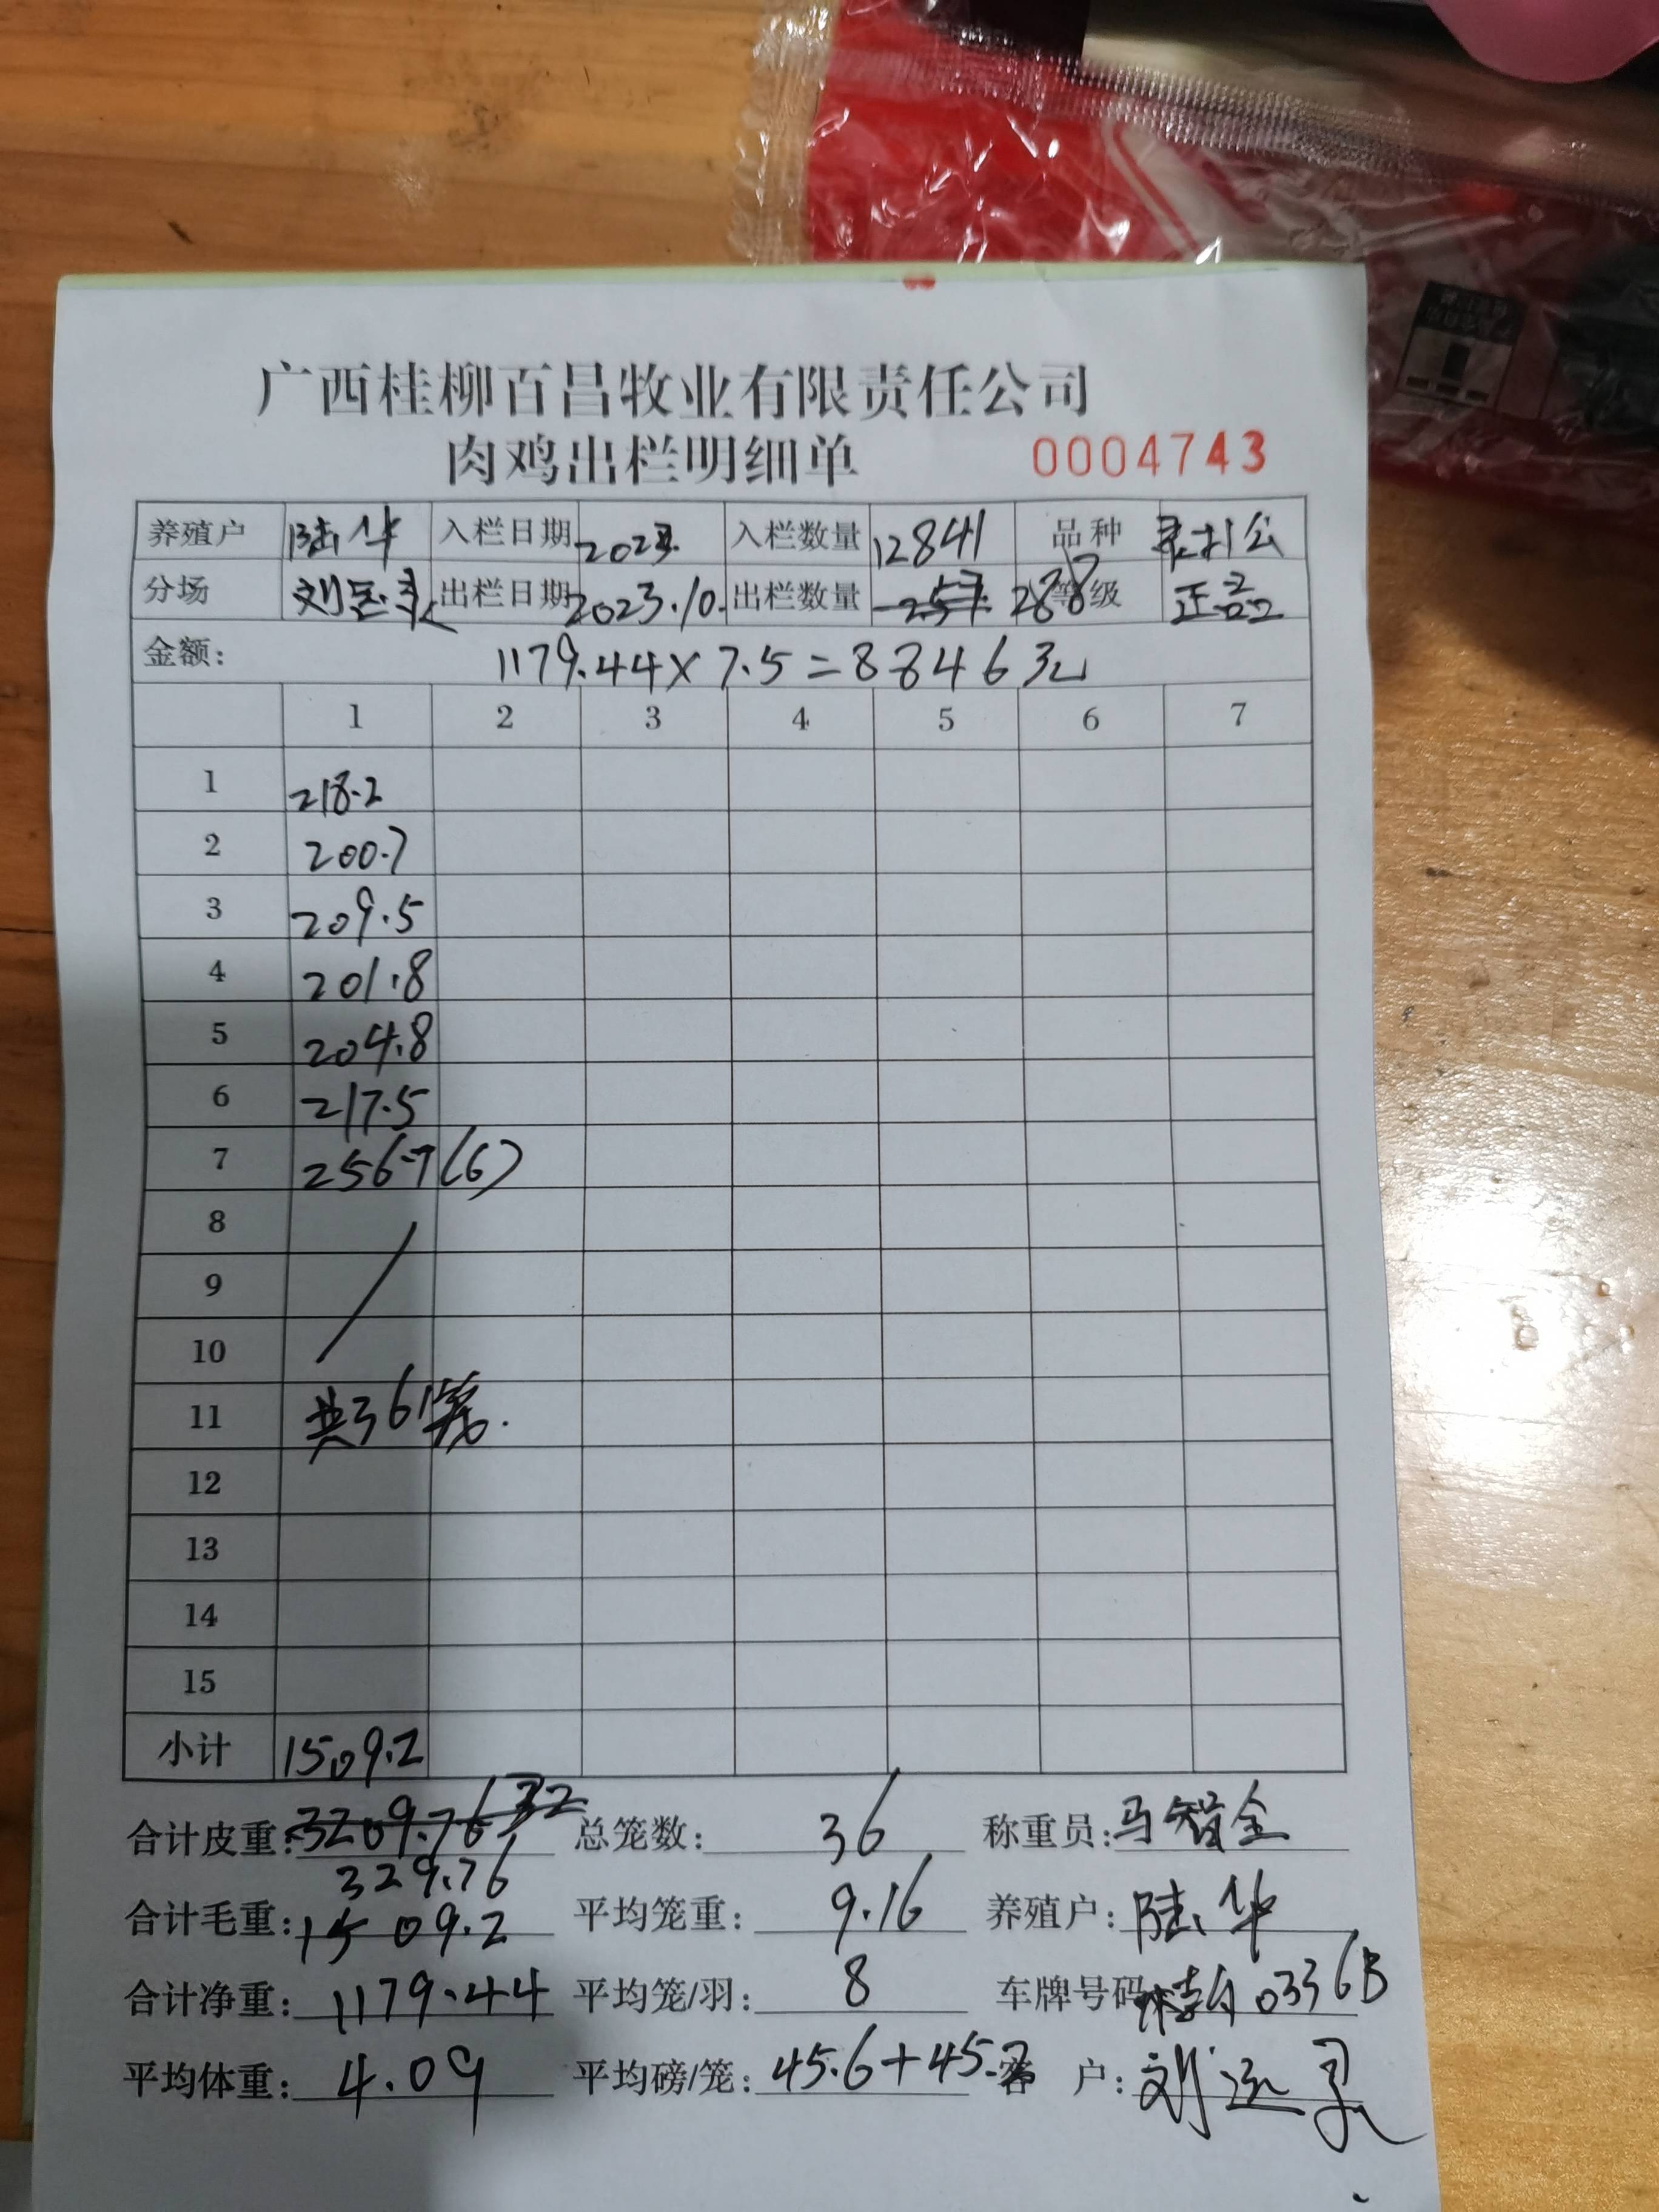 广西桂柳百昌牧业有限责任公司
肉鸡出栏明细单 0004743
养殖户 陆华 入栏日期 2023. 入栏数量 12841 品种
分场 出栏日期 2023.10. 出栏数量 257 288 等级 正品
金额: 1179.44×7.5=8846元
1 2 3 4 5 6 7
1 218.2
2 200.7
3 209.5
4 201.8
5 204.8
6 217.5
7 256.7(6)
8
9
10
11 共36笼.
12
13
14
15
小计 1509.2
合计皮重: 3209.76 32 总笼数: 36 称重员: 马智全
329.76
合计毛重: 1509.2 平均笼重: 9.16 养殖户: 陆华
合计净重: 1179.44 平均笼/羽: 8 车牌号码 0336B
平均体重: 4.09 平均磅/笼: 45.6+45. 客户: 刘